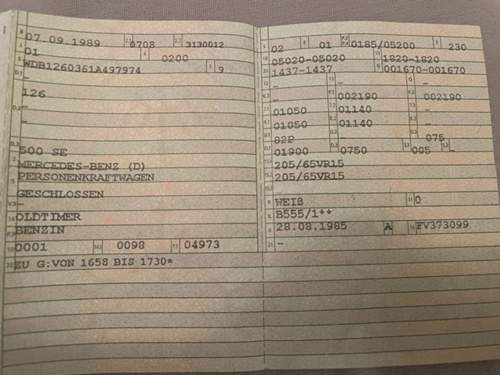 07.09.1989 0708 3130012
01 0200
WDB1260361A497974 9
-
126
-
-
500 SE
MERCEDES-BENZ (D)
PERSONENKRAFTWAGEN
GESCHLOSSEN
OLDTIMER
BENZIN
0001 0098 04973
ZU G:VON 1658 BIS 1730*
02 01 0185/05200 230
05020-05020 1820-1820
1437-1437 001670-001670
- - -
- 002190 002190
01050 01140 -
01050 01140 -
82P 075
01900 0750 005 -
205/65VR15
205/65VR15
-
WEIß 0
B555/1**
28.08.1985 A FV373099
-